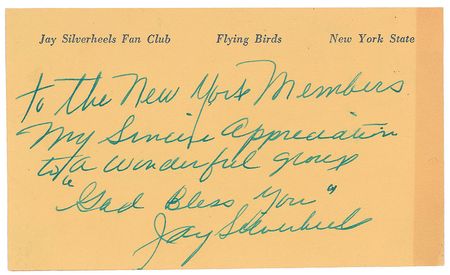 Jay Silverheels Fan Club Flying Birds New York State
To the New York Members
My Sincere Appreciation
to a wonderful group
"God Bless You"
Jay Silverheels